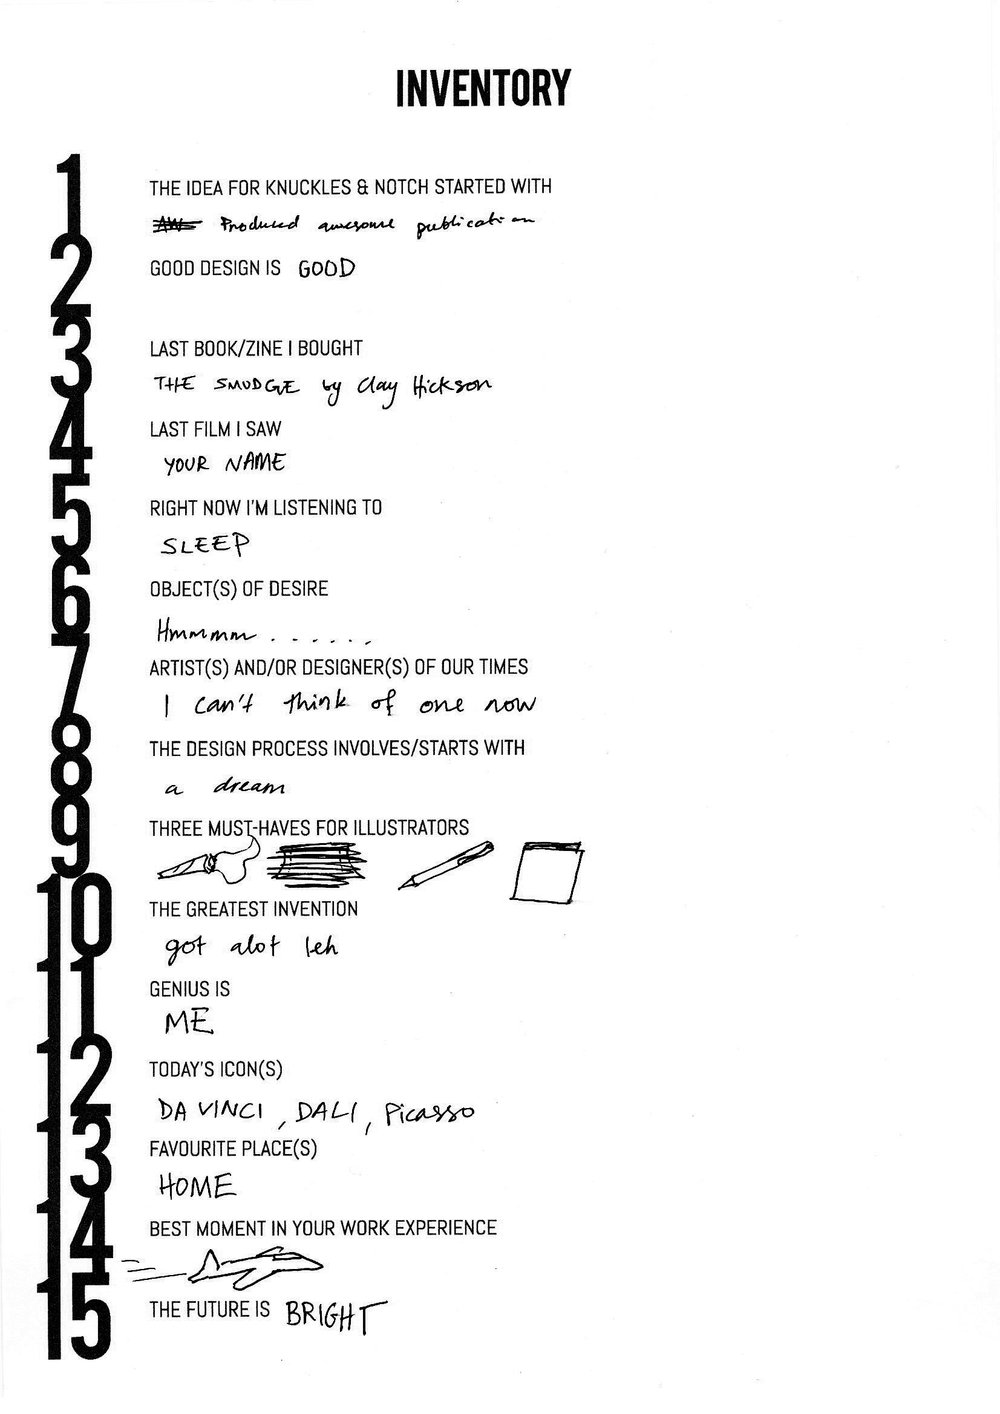 INVENTORY
1
THE IDEA FOR KNUCKLES & NOTCH STARTED WITH
Produced awesome publication
2
GOOD DESIGN IS GOOD
3
LAST BOOK/ZINE I BOUGHT
THE SMUDGE by Clay Hickson
4
LAST FILM I SAW
YOUR NAME
5
RIGHT NOW I'M LISTENING TO
SLEEP
6
OBJECT(S) OF DESIRE
Hmmmmm ......
7
ARTIST(S) AND/OR DESIGNER(S) OF OUR TIMES
I can't think of one now
8
THE DESIGN PROCESS INVOLVES/STARTS WITH
a dream
9
THREE MUST-HAVES FOR ILLUSTRATORS
10
THE GREATEST INVENTION
got alot leh
11
GENIUS IS
ME
12
TODAY'S ICON(S)
DA VINCI, DALI, Picasso
13
FAVOURITE PLACE(S)
HOME
14
BEST MOMENT IN YOUR WORK EXPERIENCE
15
THE FUTURE IS BRIGHT